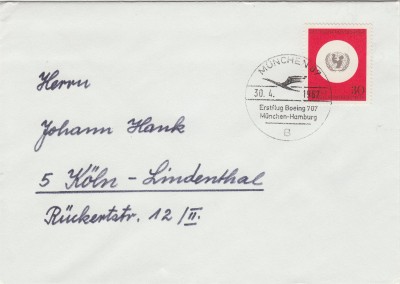 MÜNCHEN
30.4. 1967
Erstflug Boeing 707
München-Hamburg
30
Herrn
Johann Hank
5 Köln - Lindenthal
Rückertstr. 12/II.